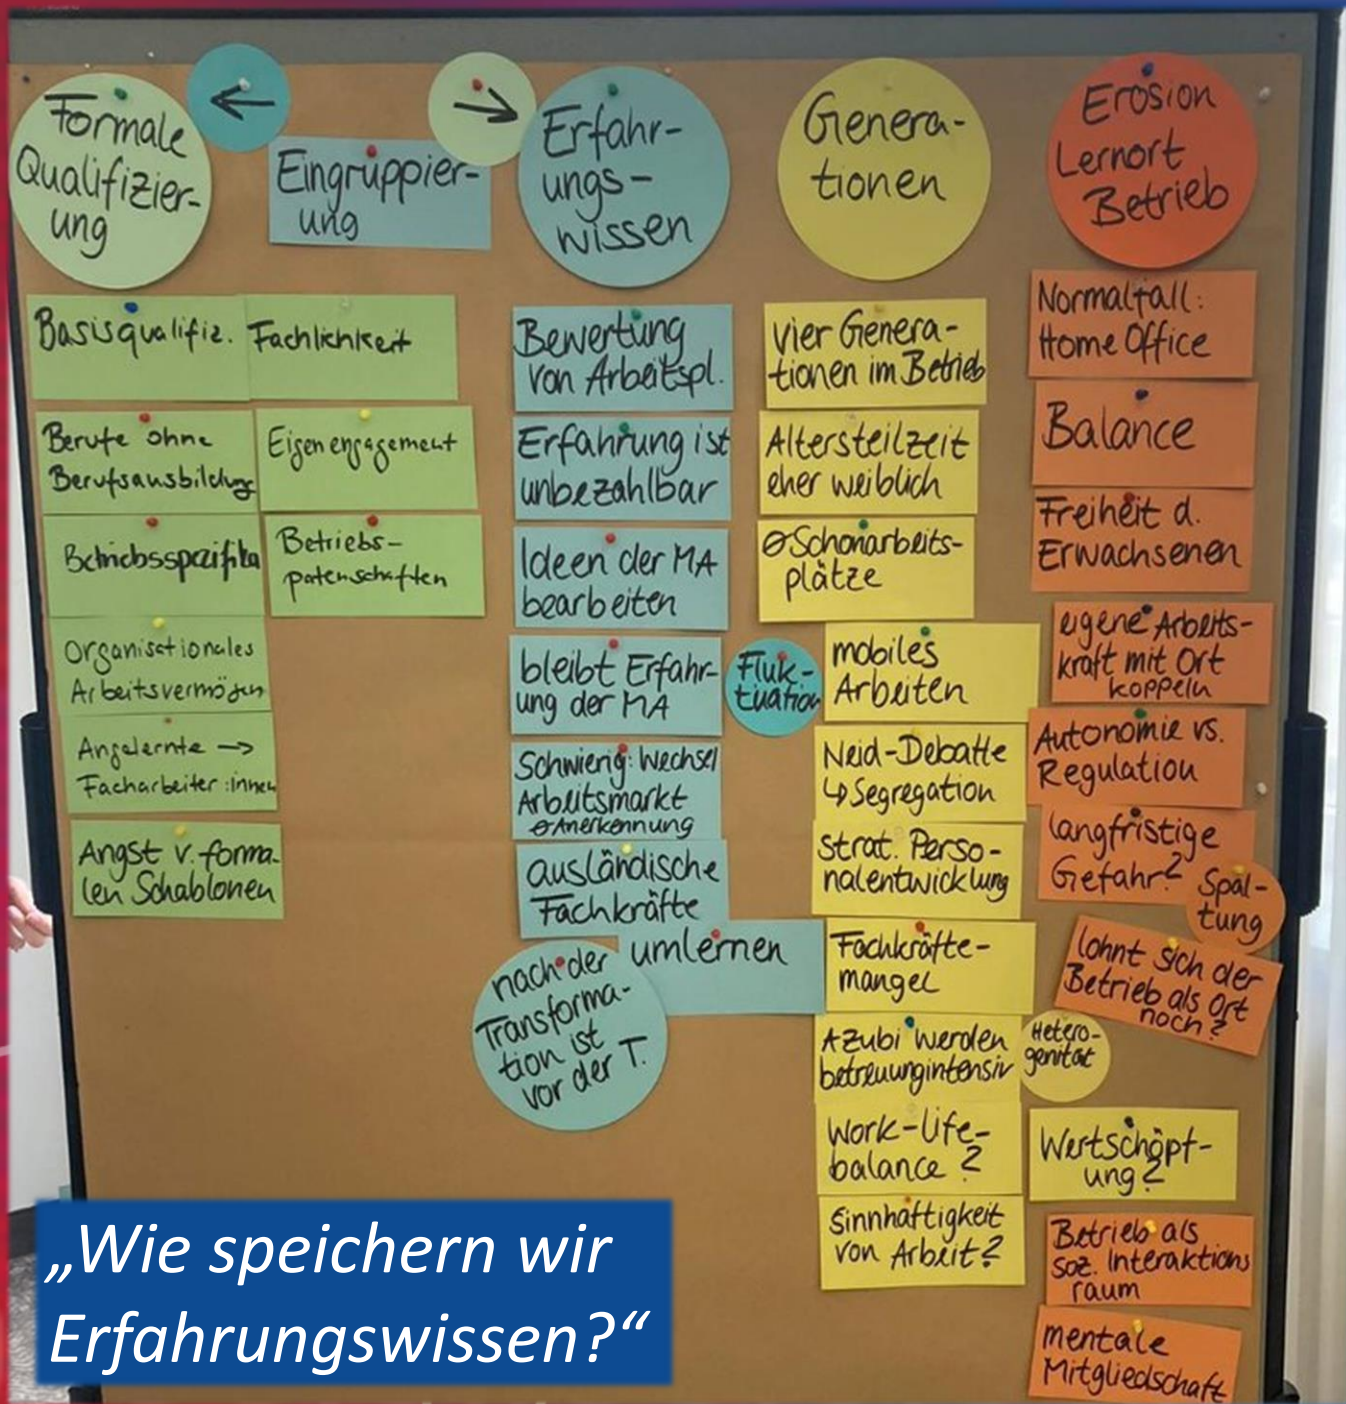 ←
→
Formale
Qualifizier-
ung
Eingruppier-
ung
Erfahr-
ungs-
wissen
Genera-
tionen
Erosion
Lernort
Betrieb
Basisqualifiz.
Berufe ohne
Berufsausbildung
Betriebsspezifika
Organisationales
Arbeitsvermögen
Angelernte →
Facharbeiter:innen
Angst v. forma-
len Schablonen
Fachlichkeit
Eigenengagement
Betriebs-
patenschaften
Bewertung
von Arbeitspl.
Erfahrung ist
unbezahlbar
Ideen der MA
bearbeiten
bleibt Erfahr-
ung der MA
Fluk-
tuation
Schwierig: Wechsel
Arbeitsmarkt
⌀Anerkennung
ausländische
Fachkräfte
umlernen
nach der
Transforma-
tion ist
vor der T.
vier Genera-
tionen im Betrieb
Altersteilzeit
eher weiblich
⌀Schonarbeits-
plätze
mobiles
Arbeiten
Neid-Debatte
↳Segregation
Strat. Perso-
nalentwicklung
Fachkräfte-
mangel
Azubi werden
betreuungintensiv
Hetero-
genität
Work-life-
balance?
Sinnhaftigkeit
von Arbeit?
Wertschöpf-
ung?
Normalfall:
Home Office
Balance
Freiheit d.
Erwachsenen
eigene Arbeits-
kraft mit Ort
koppeln
Autonomie vs.
Regulation
langfristige
Gefahr?
Spal-
tung
lohnt sich der
Betrieb als Ort
noch?
Betrieb als
soz. Interaktions
raum
mentale
Mitgliedschaft
„Wie speichern wir
Erfahrungswissen?“